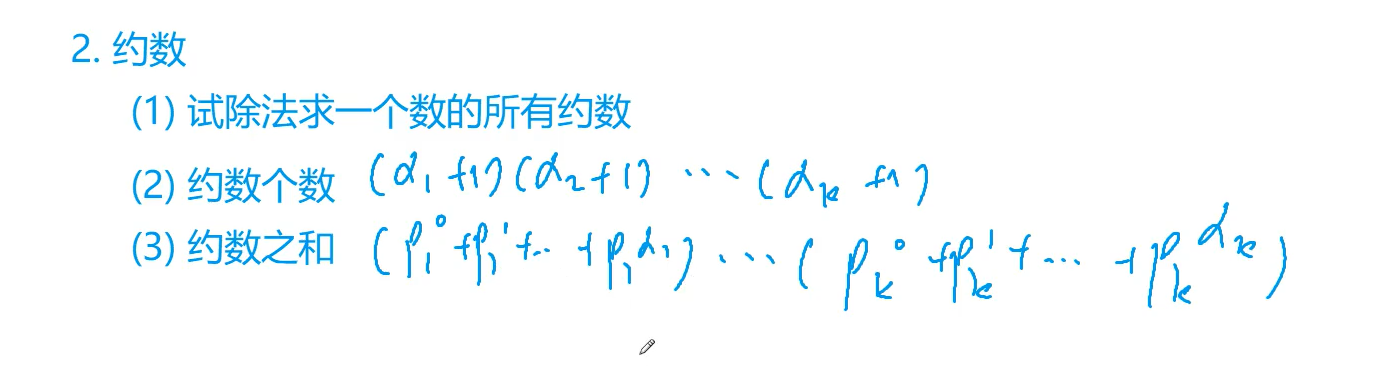 2. 约数
(1) 试除法求一个数的所有约数
(2) 约数个数 (α₁+1)(α₂+1) ··· (αₖ+1)
(3) 约数之和 (p₁⁰+p₁¹+...+p₁^α₁) ... (pₖ⁰+pₖ¹+...+pₖ^αₖ)